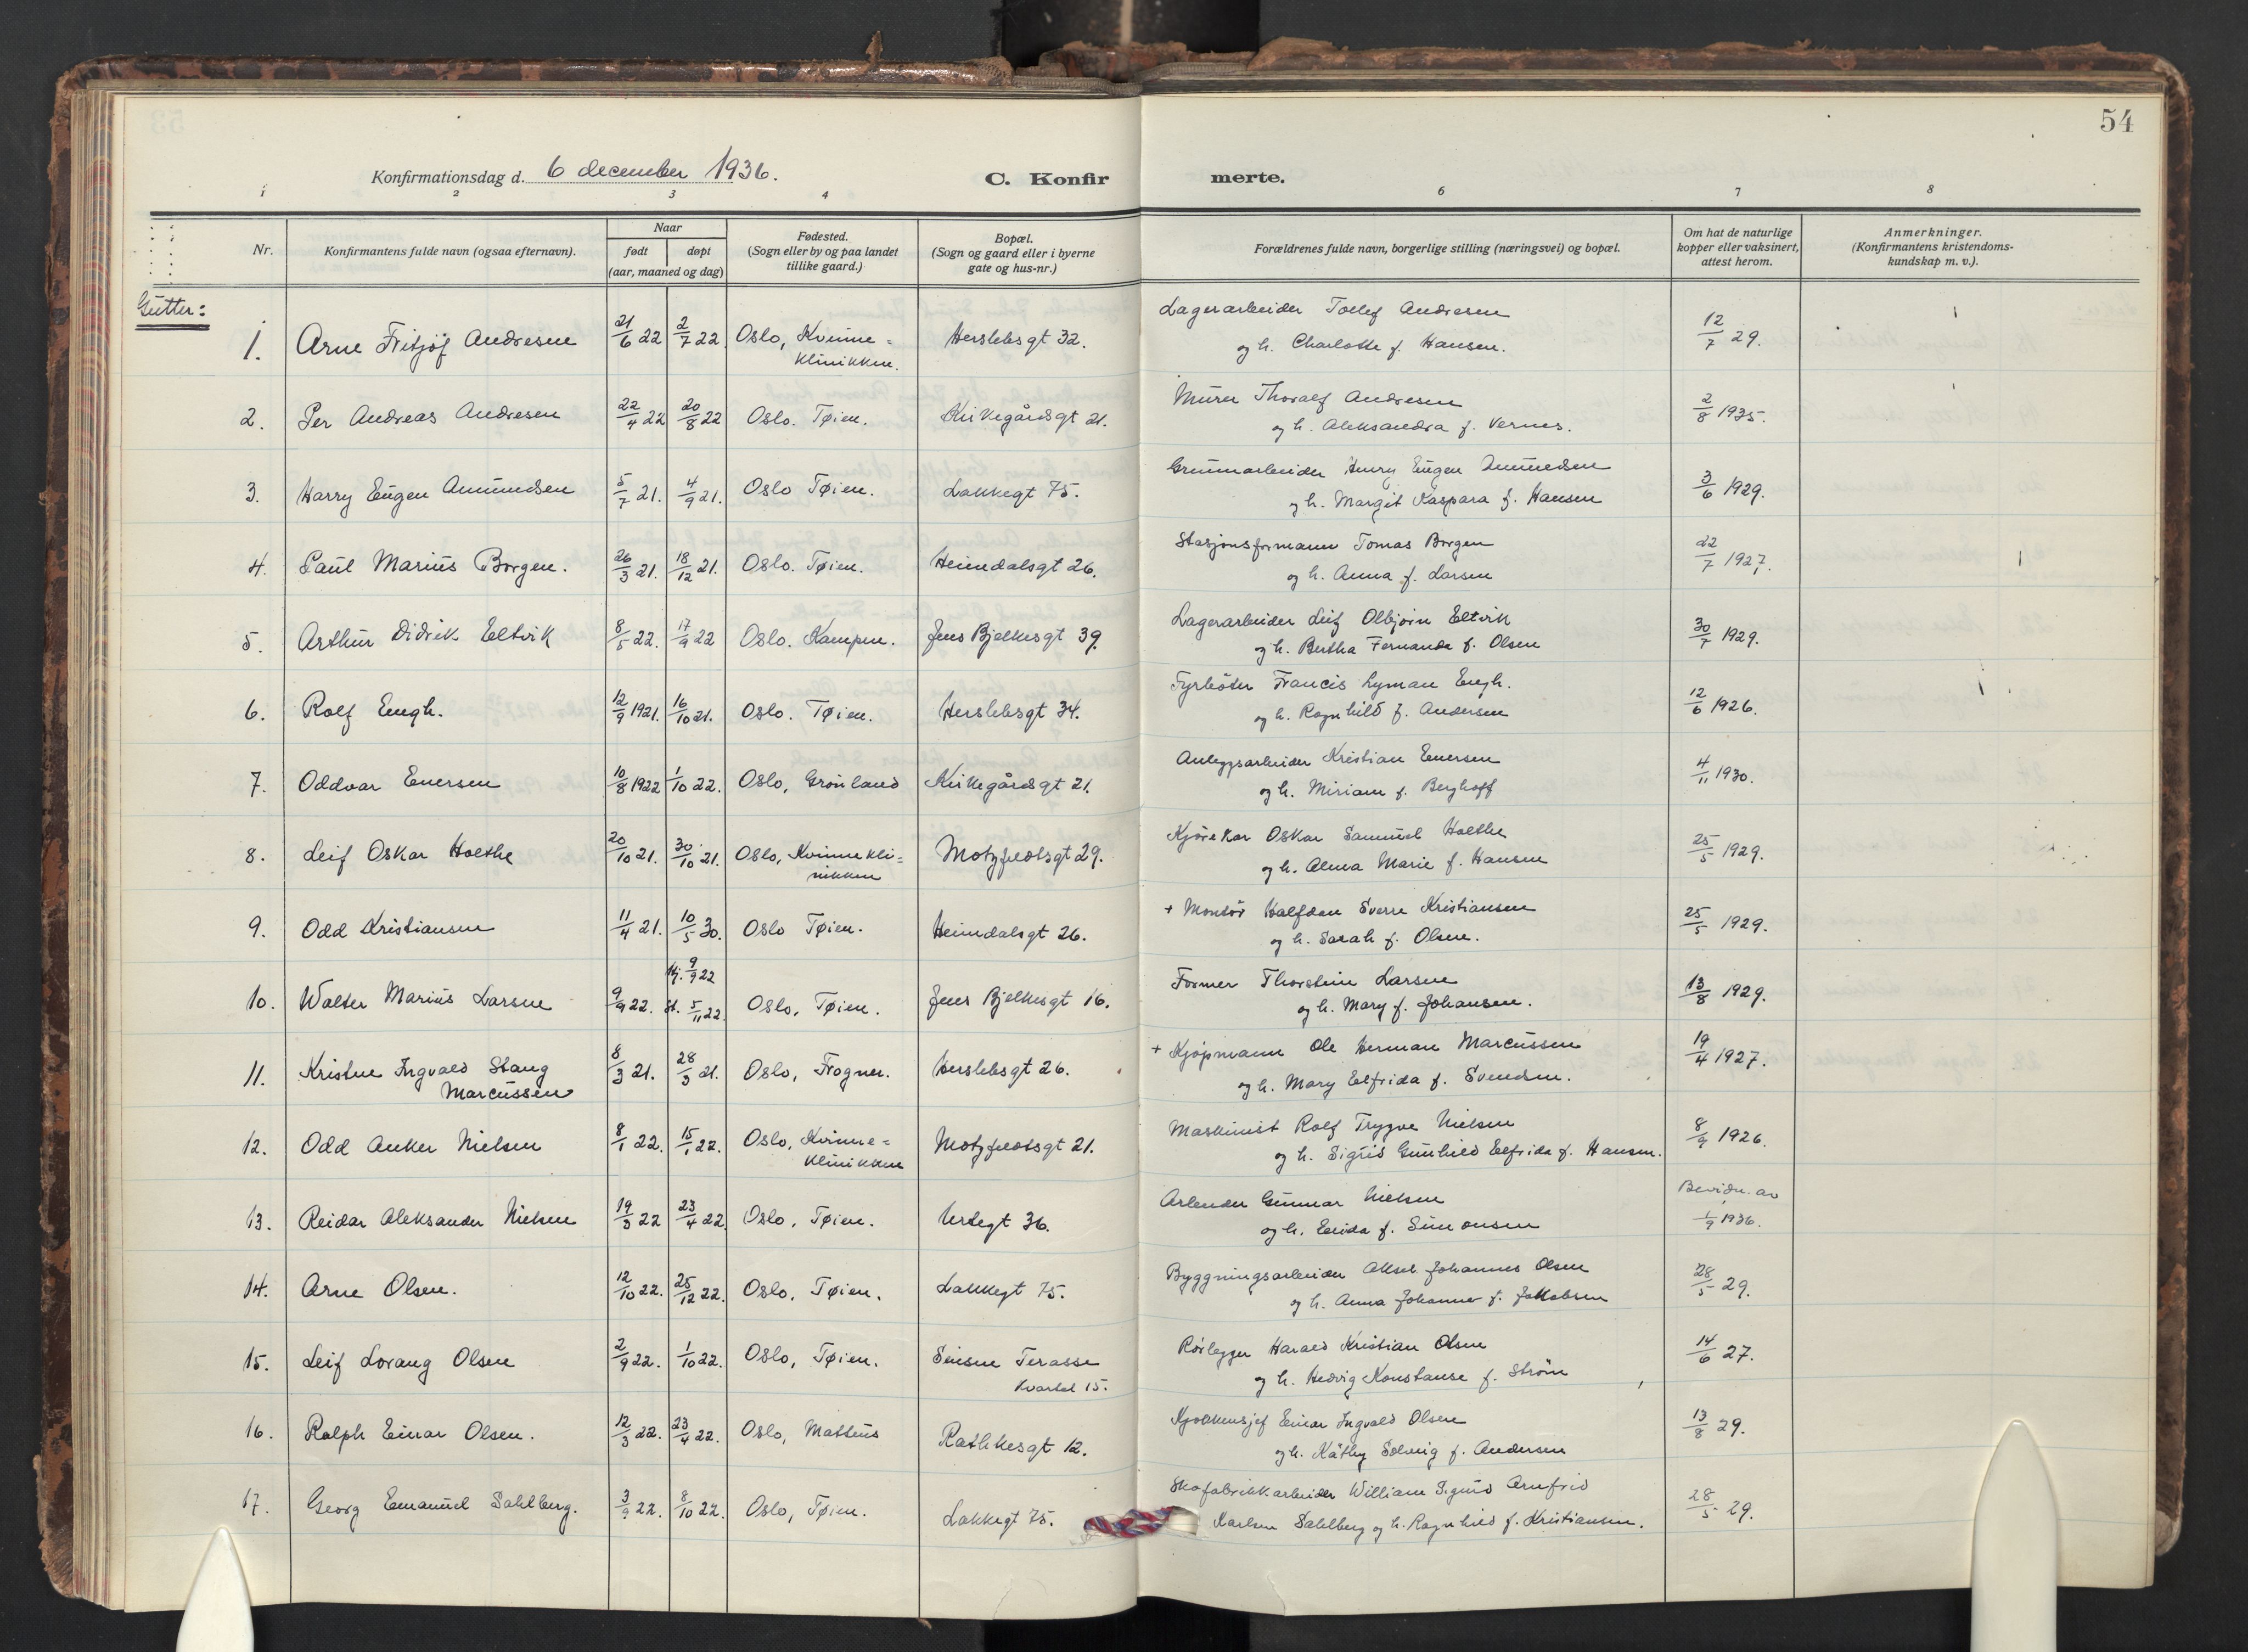 54
Konfirmationsdag d. 6 december 1936.
C. Konfirmerte.
1 2 3 4 6 7 8
Nr.
Konfirmantens fulde navn (ogsaa efternavn).
Naar
født døpt
(aar, maaned og dag)
Fødested.
(Sogn eller by og paa landet
tillike gaard.)
Bopæl.
(Sogn og gaard eller i byerne
gate og hus-nr.)
Forældrenes fulde navn, borgerlige stilling (næringsvei) og bopæl.
Om hat de naturlige
kopper eller vaksinert,
attest herom.
Anmerkninger.
(Konfirmantens kristendoms-
kundskap m. v.).
Gutter:
1. Arne Fritjof Andresen 21/6 22 2/7 22 Oslo, Kvinne= Herslebsgt 32. Lagerarbeider Tollef Andresen 12/7 29.
klinikken. og h. Charlotte f. Hansen.
2. Per Andreas Andresen 22/4 22 20/8 22 Oslo. Tøien. Kirkegårdsgt 21. Murer Thoralf Andresen 2/8 1935.
og h. Aleksandra f. Vernes.
3. Harry Eugen Amundsen 5/7 21. 4/9 21. Oslo Tøien. Lakkegt 75. Grunnarbeider Henry Eugen Amundsen 3/6 1929.
og h. Margit Kaspara f. Hansen
4. Paul Marius Borgen. 26/3 21. 18/12 21. Oslo. Tøien. Heimdalsgt 26. Stasjonsformann Tomas Borgen 22/7 1927.
og h. Anna f. Larsen
5. Arthur Didrik Eltvik 8/5 22. 17/9 22 Oslo. Kampen. Jens Bjelkesgt 39. Lagerarbeider Leif Olbjørn Eltvik 30/7 1929.
og h. Bertha Fernanda f. Olsen
6. Rolf Engh. 12/9 1921. 16/10 21. Oslo. Tøien. Herslebsgt 34. Fyrbøter Francis Lyman Engh. 12/6 1926.
og h. Ragnhild f. Andersen
7. Oddvar Enersen 10/8 1922 1/10 22. Oslo, Grønland Kirkegårdsgt 21. Anleggsarbeider Kristian Enersen 4/11 1930.
og h. Miriam f. Berghoff
8. Leif Oskar Holthe 20/10 21. 30/10 21. Oslo, Kvinnekli= Motzfeldtsgt 29. Kjørekar Oskar Samuel Holthe 25/5 1929.
nikken og h. Alma Marie f. Hansen
9. Odd Kristiansen 11/4 21. 10/5 30. Oslo Tøien. Heimdalsgt 26. + Montør Halfdan Sverre Kristiansen 25/5 1929.
og h. Sarah f. Olsen.
hj. 9/9 22
10. Walter Marius Larsen 9/9 22. st. 5/11 22. Oslo, Tøien. Jens Bjelkesgt 16. Former Thorstein Larsen 13/8 1929.
og h. Mary f. Johansen.
11. Kristen Ingvald Stang 8/3 21. 28/3 21. Oslo, Frogner. Herslebsgt 26. + Kjøpmann Ole Herman Marcussen 19/4 1927.
Marcussen og h. Mary Elfrida f. Svendsen.
12. Odd Anker Nielsen 8/1 22. 15/1 22. Oslo, Kvinne= Motzfeldtsgt 21. Maskinist Rolf Trygve Nielsen 8/9 1926.
klinikken og h. Sigrid Gunhild Elfrida f. Hansen.
13. Reidar Aleksander Nielsen 19/3 22 23/4 22. Oslo, Tøien. Urtegt 36. Arbeider Gunnar Nielsen Bevidn. av
og h. Enida f. Simonsen 1/9 1936.
14. Arne Olsen. 12/10 22. 25/12 22. Oslo, Tøien. Lakkegt 75. Byggningsarbeider Aksel Johannes Olsen 28/5 29.
og h. Anna Johanne f. Jakobsen
15. Leif Lorang Olsen 2/9 22. 1/10 22. Oslo, Tøien. Ensjøen Terasse Rørlegger Harald Kristian Olsen 14/6 27.
kvartal 15. og h. Hedvig Konstanse f. Strøm
16. Ralph Einar Olsen. 12/3 22. 23/4 22. Oslo, Matteus Rathkesgt 12. Kjøkkensjef Einar Ingvald Olsen 13/8 29.
og h. Käthy Solveig f. Andersen
17. Georg Emanuel Sahlberg. 3/9 22. 8/10 22. Oslo, Tøien. Lakkegt 75. Skofabrikkarbeider William Sigurd Arnfrid 28/5 29.
Karlsen Sahlberg og h. Ragnhild f. Kristiansen.